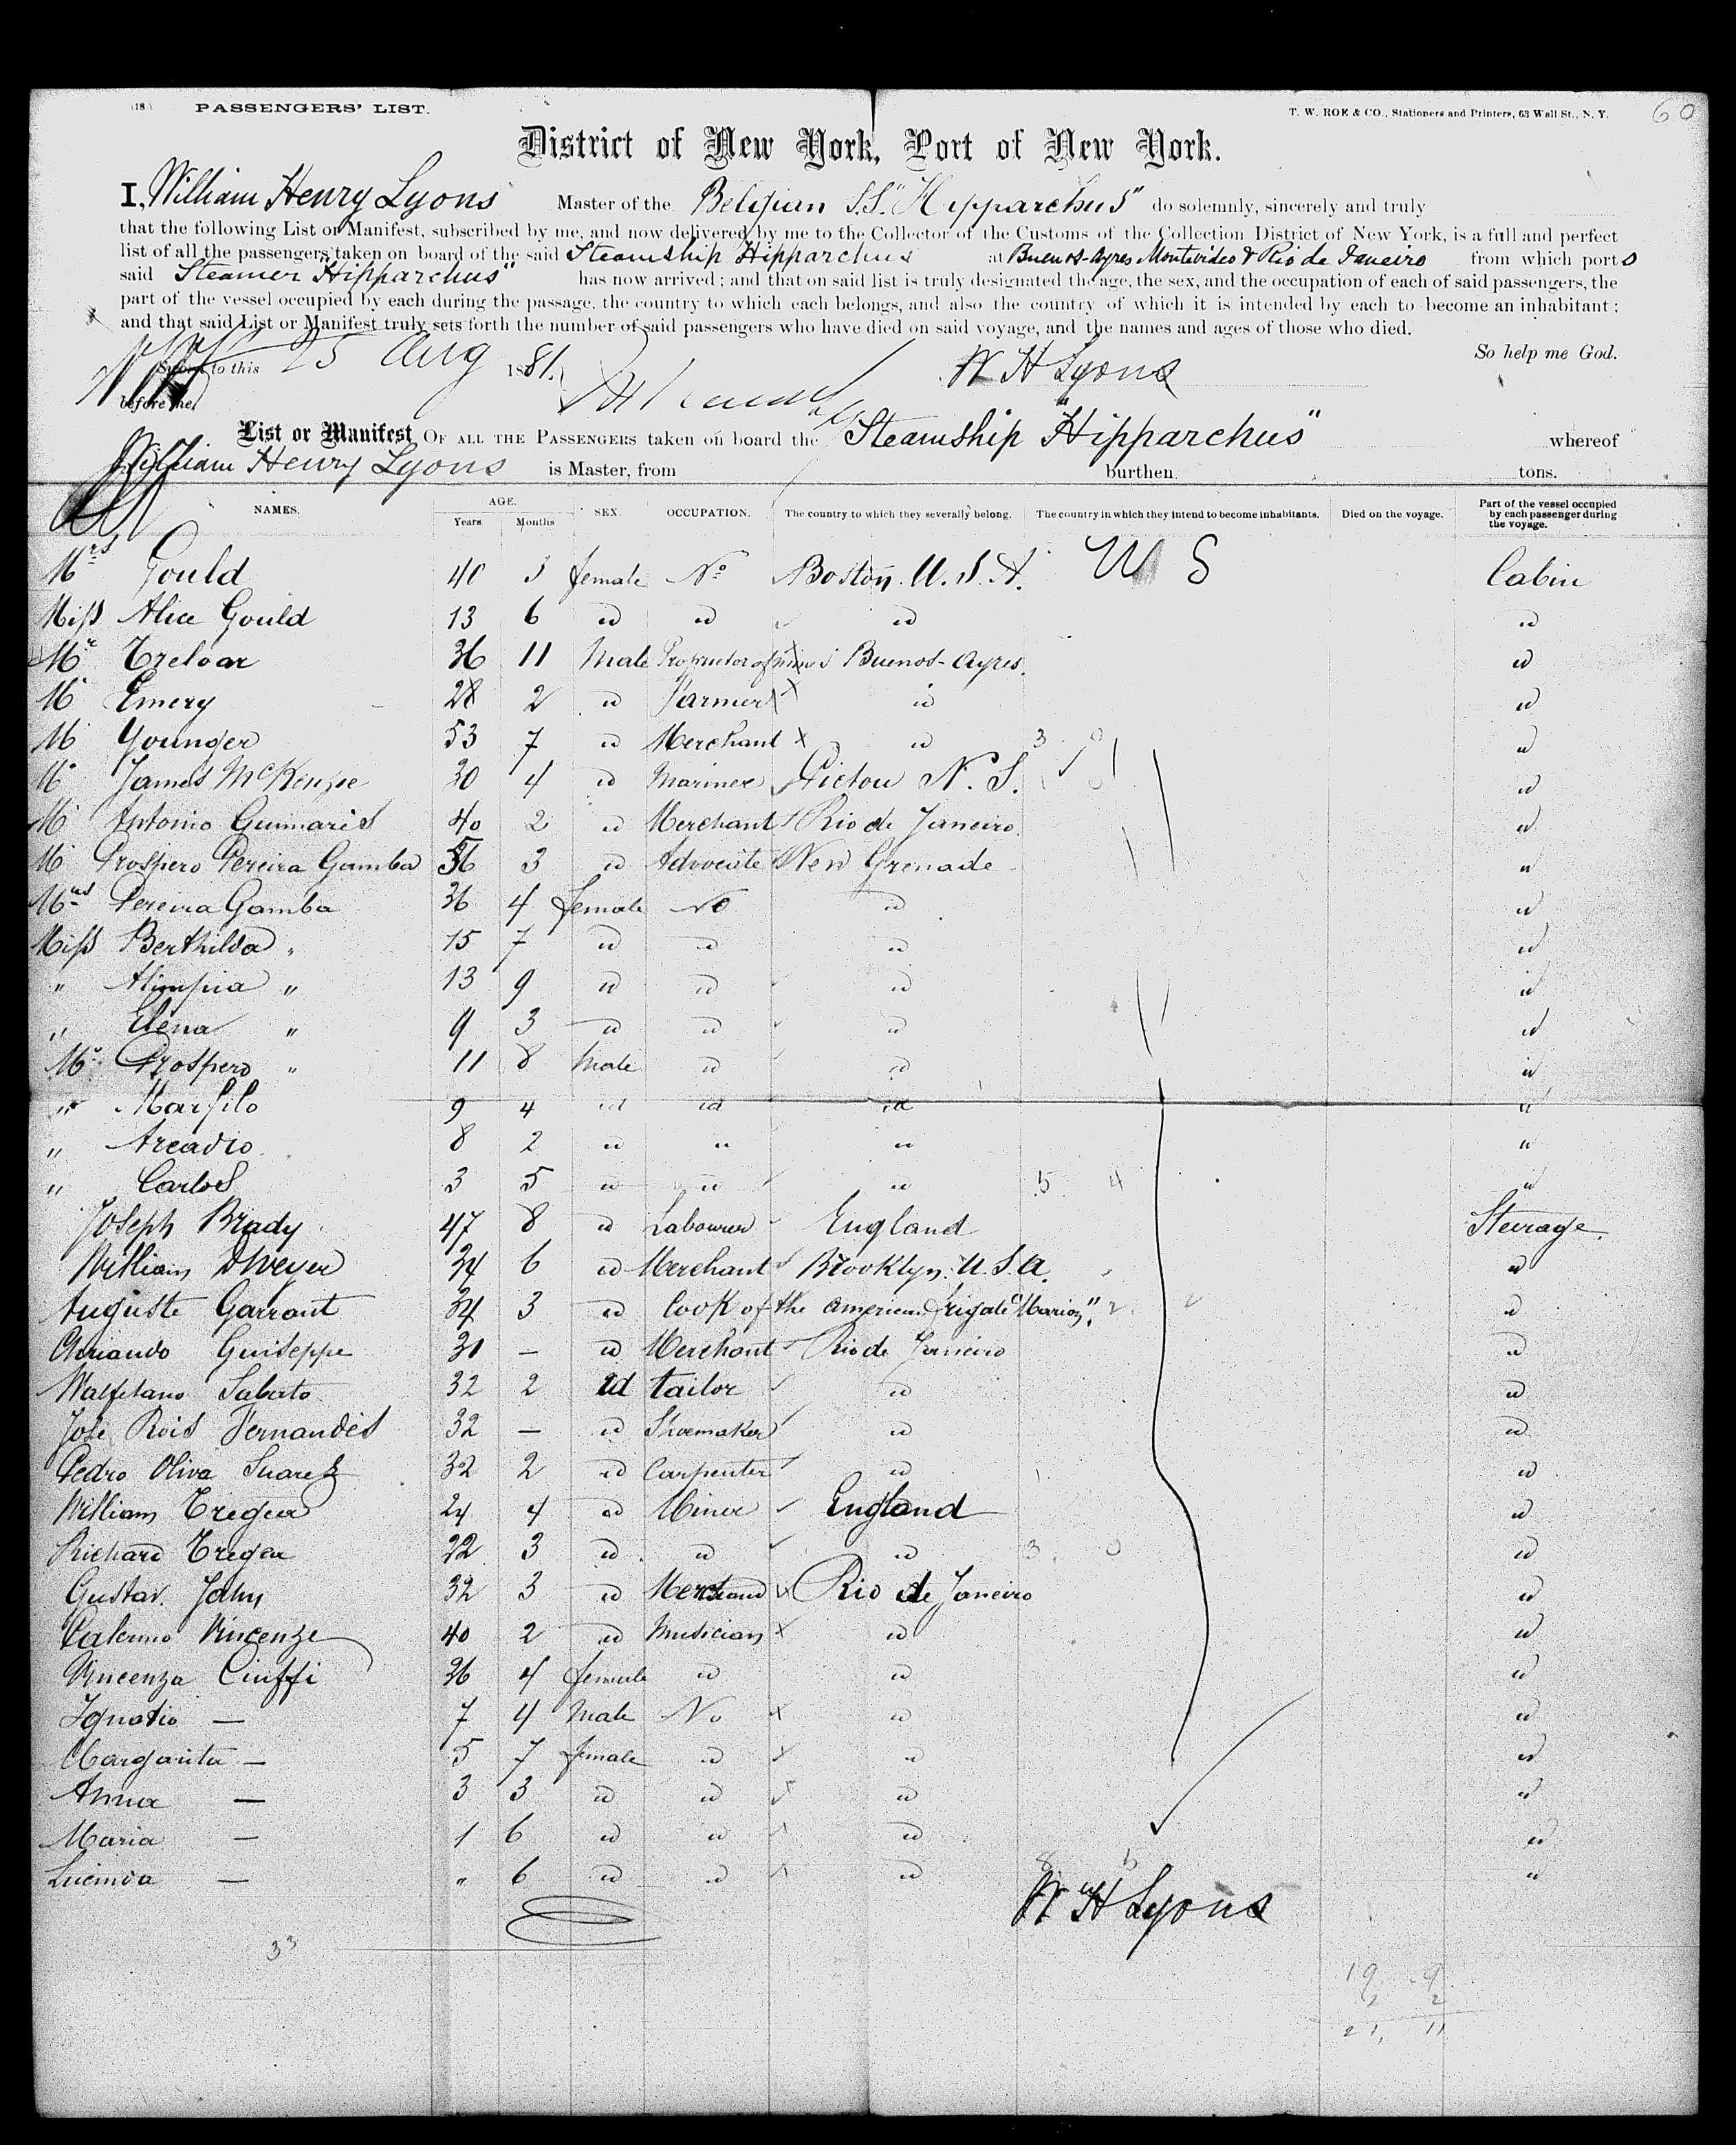 (18.) PASSENGERS' LIST. T. W. ROE & CO., Stationers and Printers, 63 Wall St., N. Y. 60
District of New York, Port of New York.
I, William Henry Lyons Master of the Belgian S.S. "Hipparchus" do solemnly, sincerely and truly
that the following List or Manifest, subscribed by me, and now delivered by me to the Collector of the Customs of the Collection District of New York, is a full and perfect
list of all the passengers taken on board of the said Steamship Hipparchus at Buenos-Ayres Montevideo & Rio de Janeiro from which ports
said Steamer "Hipparchus" has now arrived; and that on said list is truly designated the age, the sex, and the occupation of each of said passengers, the
part of the vessel occupied by each during the passage, the country to which each belongs, and also the country of which it is intended by each to become an inhabitant;
and that said List or Manifest truly sets forth the number of said passengers who have died on said voyage, and the names and ages of those who died.
So help me God.
Sworn to this 25 Aug 1881. W H Lyons
before me,
List or Manifest OF ALL THE PASSENGERS taken on board the Steamship "Hipparchus" whereof
William Henry Lyons is Master, from burthen tons.
NAMES. AGE. Years Months SEX. OCCUPATION. The country to which they severally belong. The country in which they intend to become inhabitants. Died on the voyage. Part of the vessel occupied by each passenger during the voyage.
Mrs Gould 40 3 female No Boston. U.S.A. U S Cabin
Miss Alice Gould 13 6 id id id id
Mr Treloar 36 11 Male Proprietor of mines Buenos-Ayres. id
M Emery 28 2 id Farmer id id
M Younger 53 7 id Merchant id id
M James McKenzie 30 4 id Mariner Pictou N.S. id
M Antonio Guimares 40 2 id Merchant Rio de Janeiro id
M Prospero Pereira Gamba 56 3 id Advocate New Grenade id
Mrs Pereira Gamba 36 4 female No id id
Miss Berthilda " 15 7 id id id id
" Alimpia " 13 9 id id id id
" Elena " 9 3 id id id id
Mr Prospero " 11 8 Male id id id
" 9 4 id id id id
" Arcadio 8 2 id id id id
" Carlos 3 5 id id id 5 4 id
Joseph Brady 47 8 id Labourer England Steerage.
William Dweyer 34 6 id Merchant Brooklyn. U.S.A. id
Auguste Garrant 34 3 id Cook of the American frigate "Marion". id
Guiseppe 31 — id Merchant Rio de Janeiro id
Sabato 32 2 id tailor id id
Jose Rois Fernandes 32 — id Shoemaker id id
Pedro Oliva Suarez 32 2 id Carpenter id id
William Tregea 24 4 id Miner England id
Richard Tregea 22 3 id id id 3 0 id
Gustav. Jahn 32 3 id Merchand Rio de Janeiro id
Palermo Vincenze 40 2 id Musician id id
Vincenza Ciuffi 36 4 female id id id
Ignatio — 7 4 Male No id id
Margarita — 5 7 female id id id
Anna — 3 3 id id id id
Maria — 1 6 id id id id
Lucinda — " 6 id id id id
W H Lyons
33
19 9
2 2
21, 11